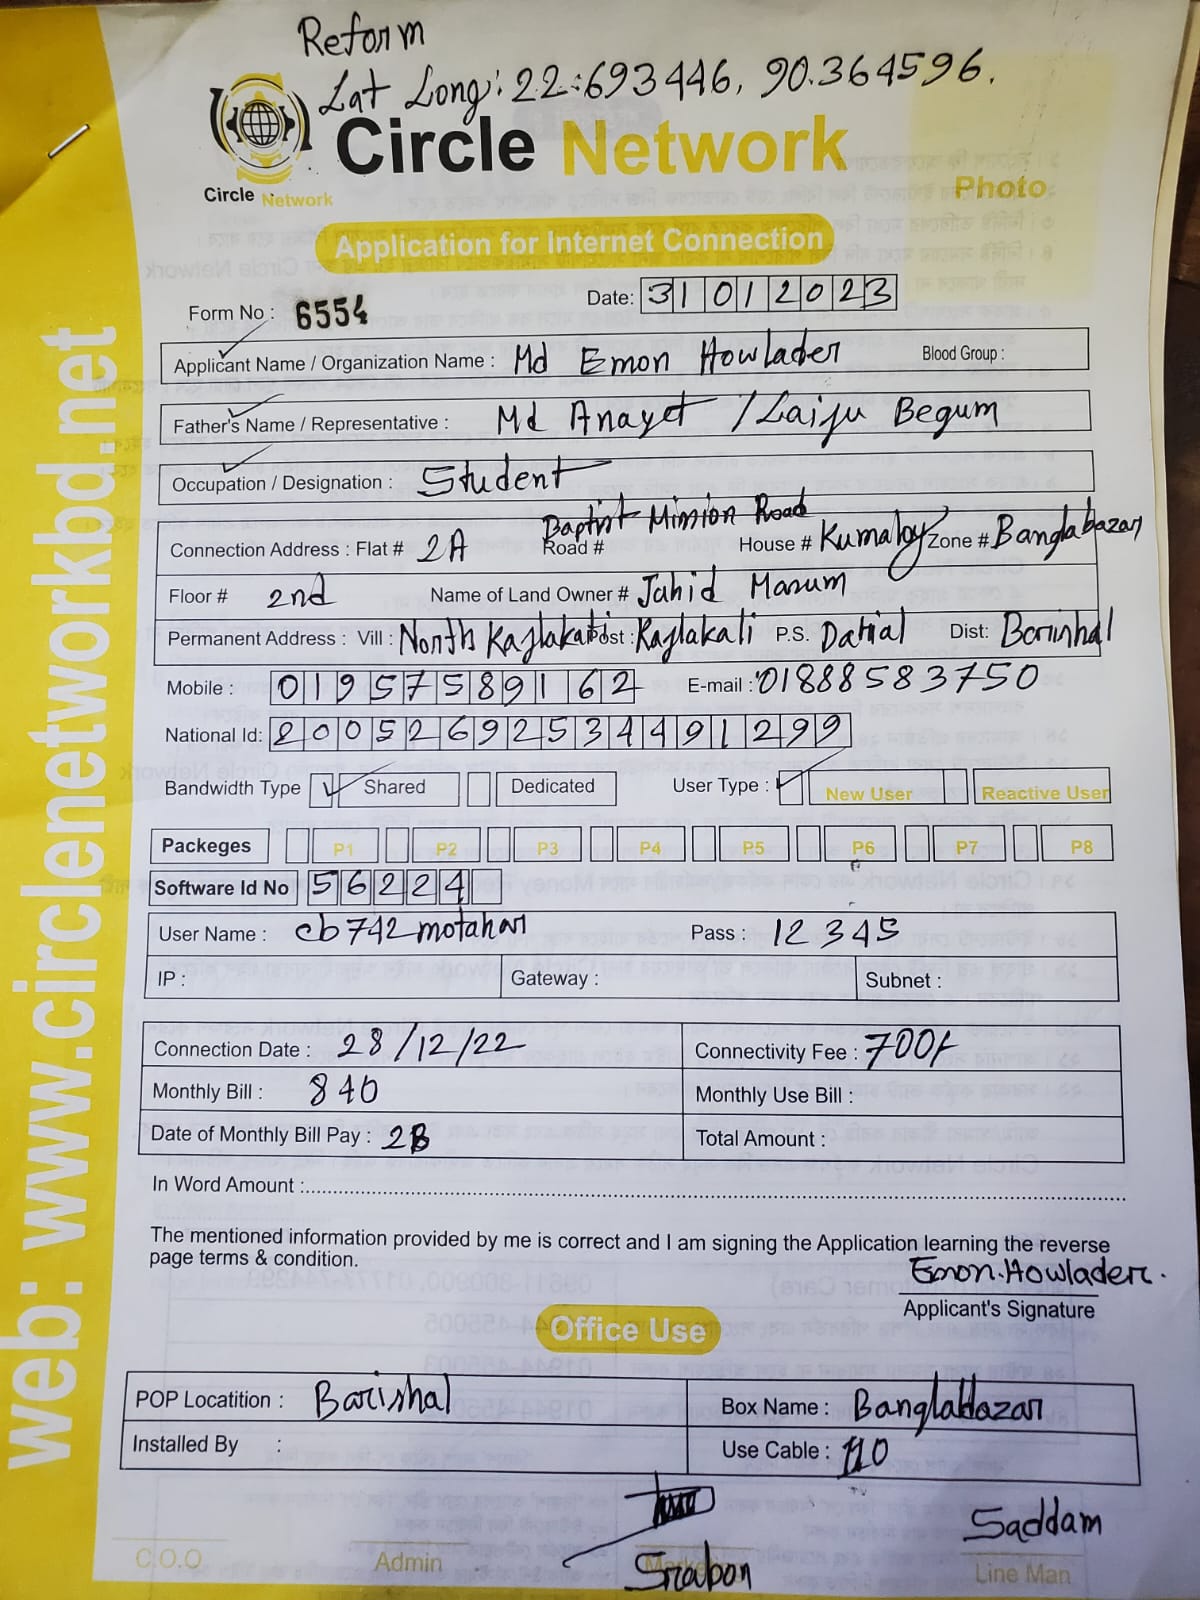 Reform
Lat Long: 22.693446, 90.364596.
Circle Network
Circle Network
Photo
Application for Internet Connection
Form No : 6554
Date: 31012023
Applicant Name / Organization Name : Md Emon Howlader Blood Group :
Father's Name / Representative : Md Anayet / Laiju Begum
Occupation / Designation : Student
Connection Address : Flat # 2A Road # Baptist Mission Road House # Kumaloy Zone # Banglabazar
Floor # 2nd Name of Land Owner # Jahid Masum
Permanent Address : Vill : North Kajlakati Post : Kajlakati P.S. Dist: Borishal
Mobile : 01957589162 E-mail : 01888583750
National Id: 20052692534491299
Bandwidth Type Shared Dedicated User Type : New User Reactive User
Packeges P1 P2 P3 P4 P5 P6 P7 P8
Software Id No 56224
User Name : cb742motahar Pass : 12345
IP : Gateway : Subnet :
Connection Date : 28/12/22 Connectivity Fee : 700/-
Monthly Bill : 840 Monthly Use Bill :
Date of Monthly Bill Pay : 28 Total Amount :
In Word Amount :
The mentioned information provided by me is correct and I am signing the Application learning the reverse
page terms & condition.
Emon.Howlader.
Applicant's Signature
Office Use
POP Locatition : Barishal Box Name : Banglabazar
Installed By : Use Cable : 110
Saddam
Srabon
C.O.O Admin Line Man
web: www.circlenetworkbd.net